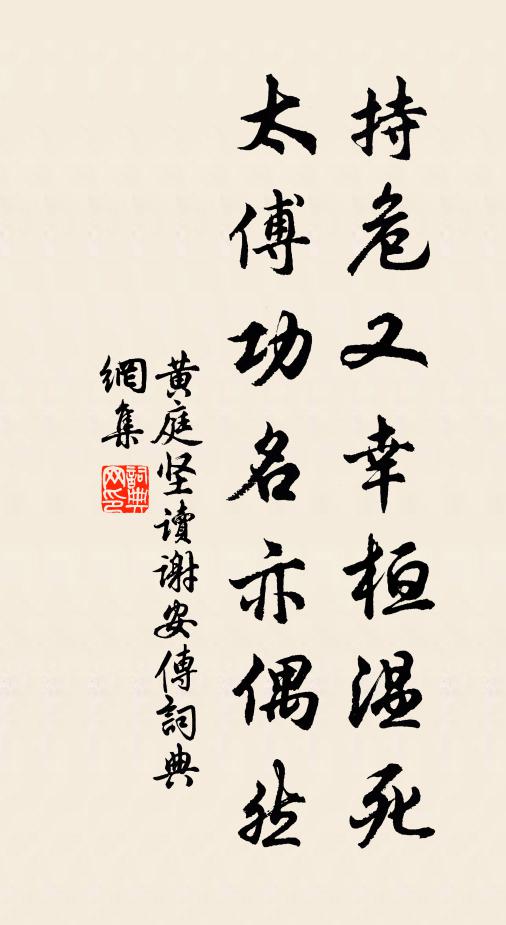 持危又幸桓温死
太傅功名亦偶然
黄庭坚读謝安傳詞典
網集
詞典
网印